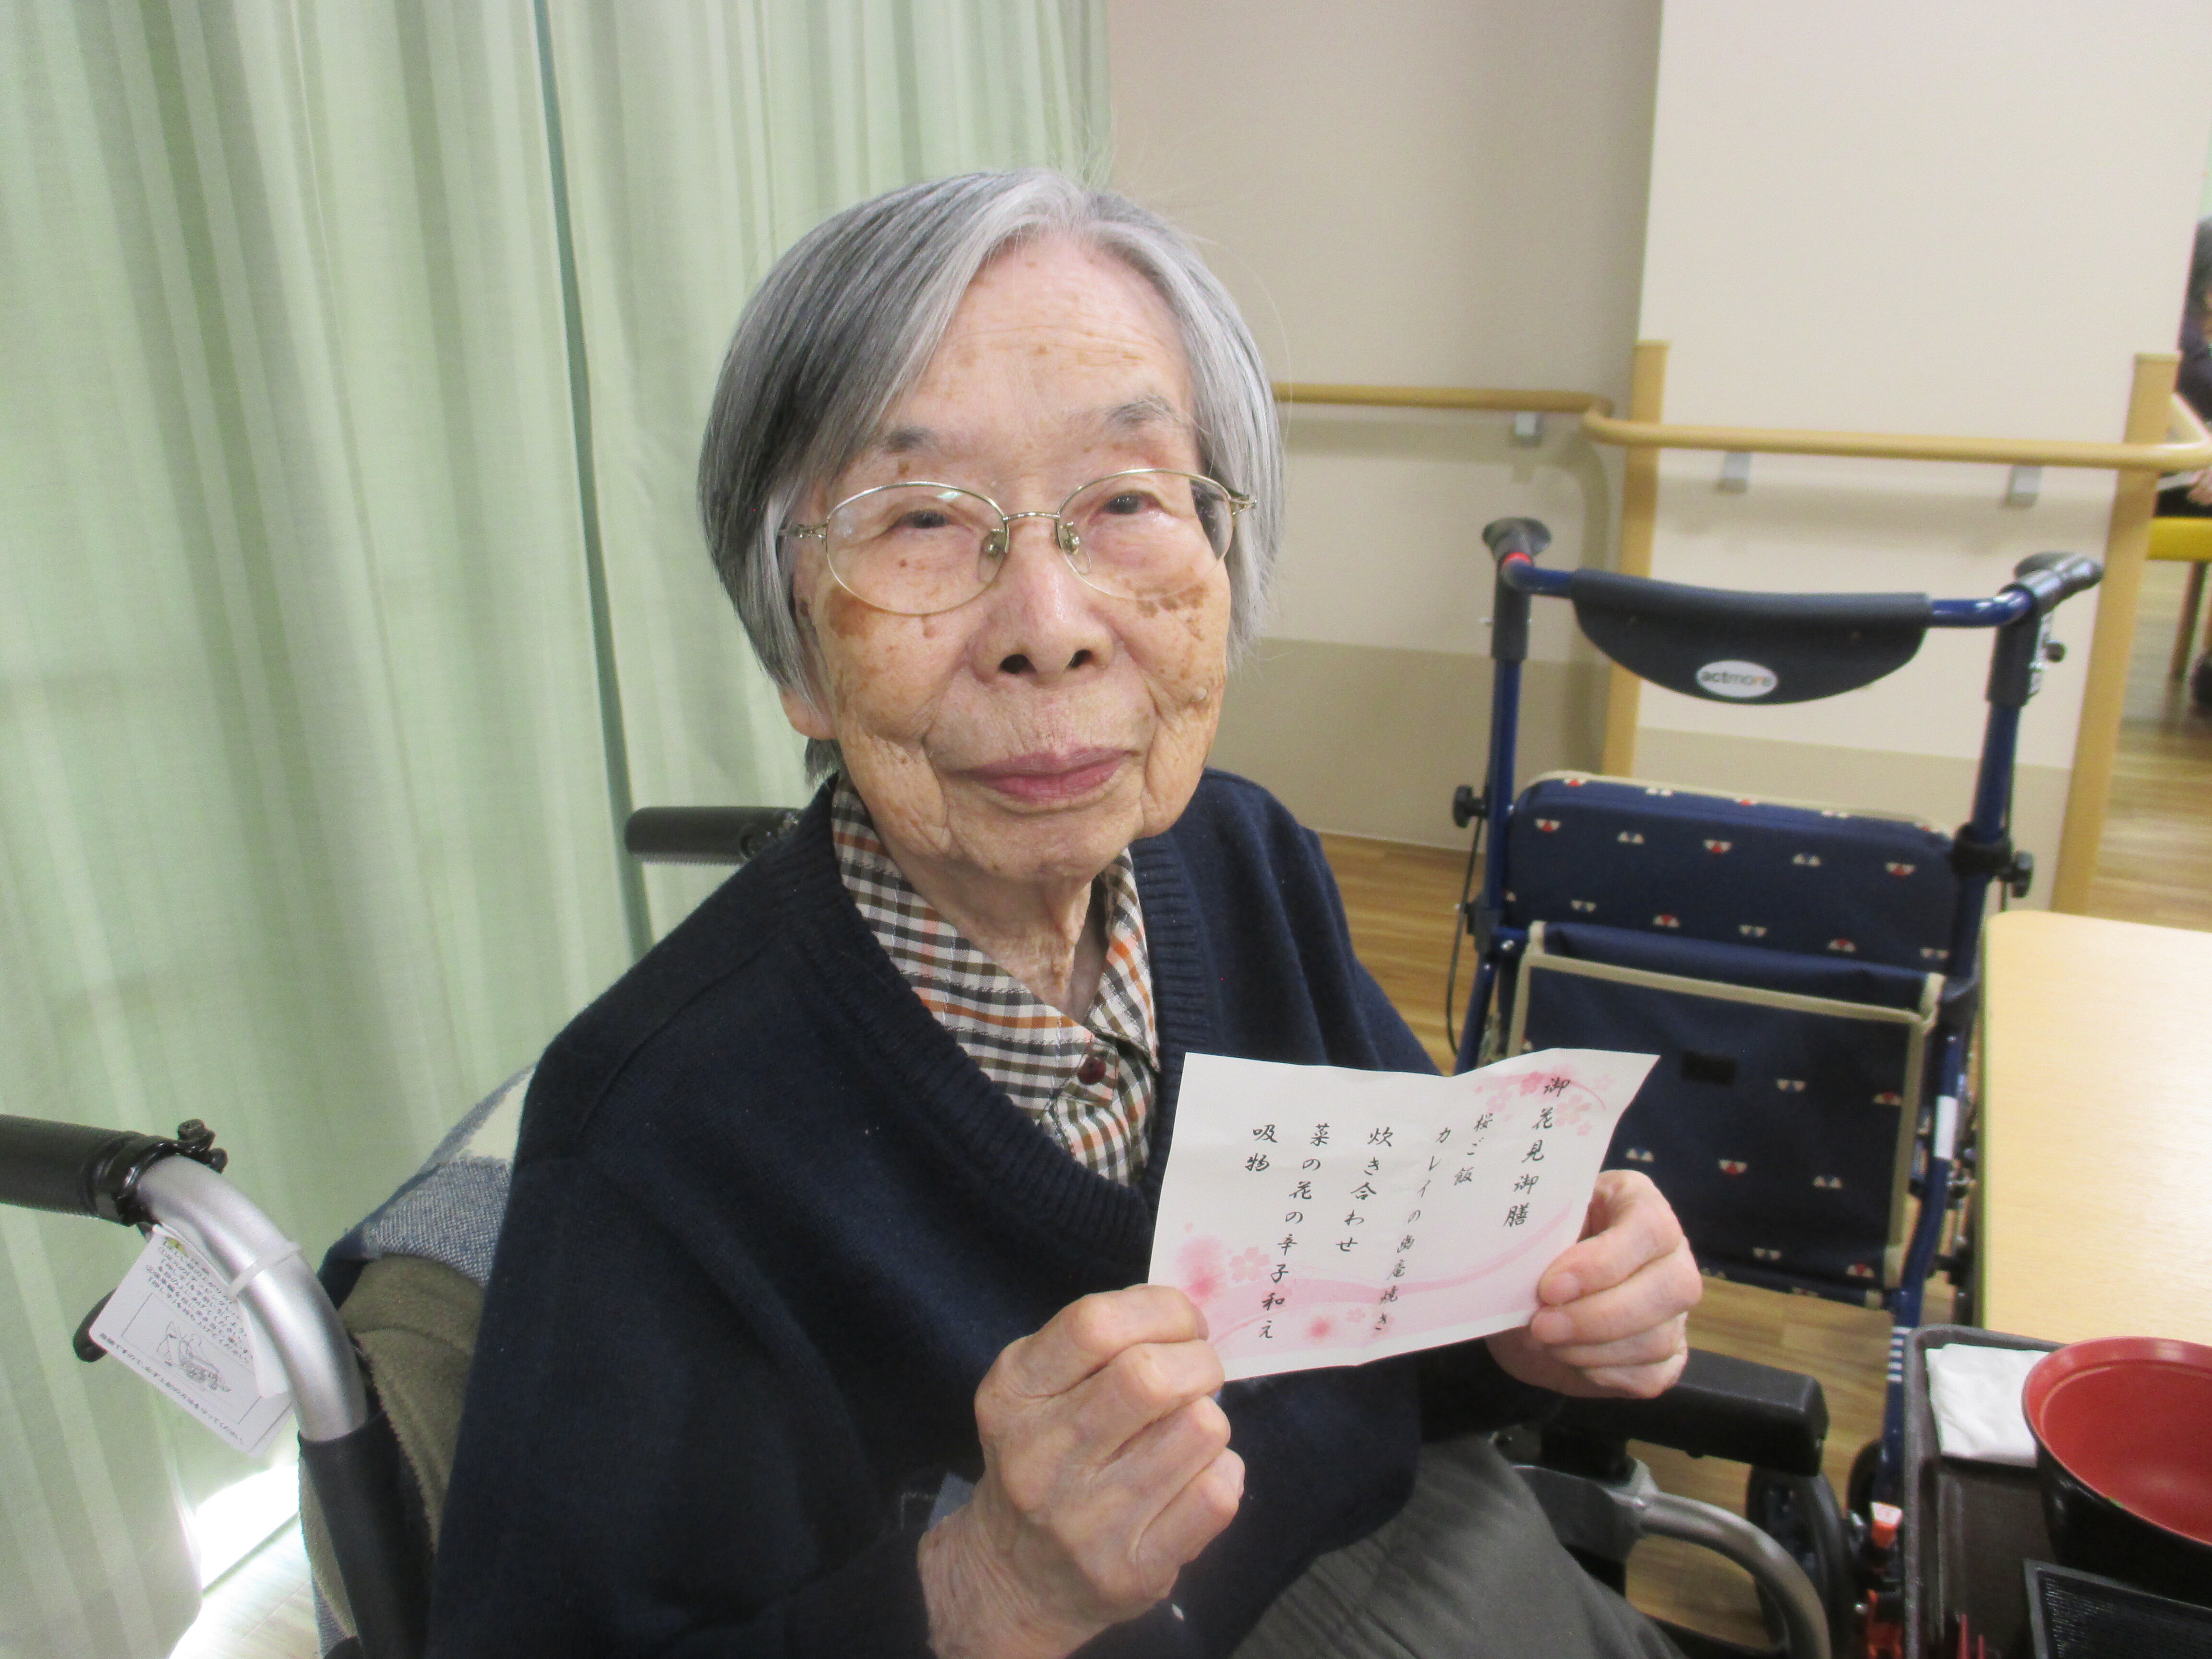 御花見御膳
桜ご飯
カレイの幽庵焼き
炊き合わせ
菜の花の辛子和え
吸物
actmore